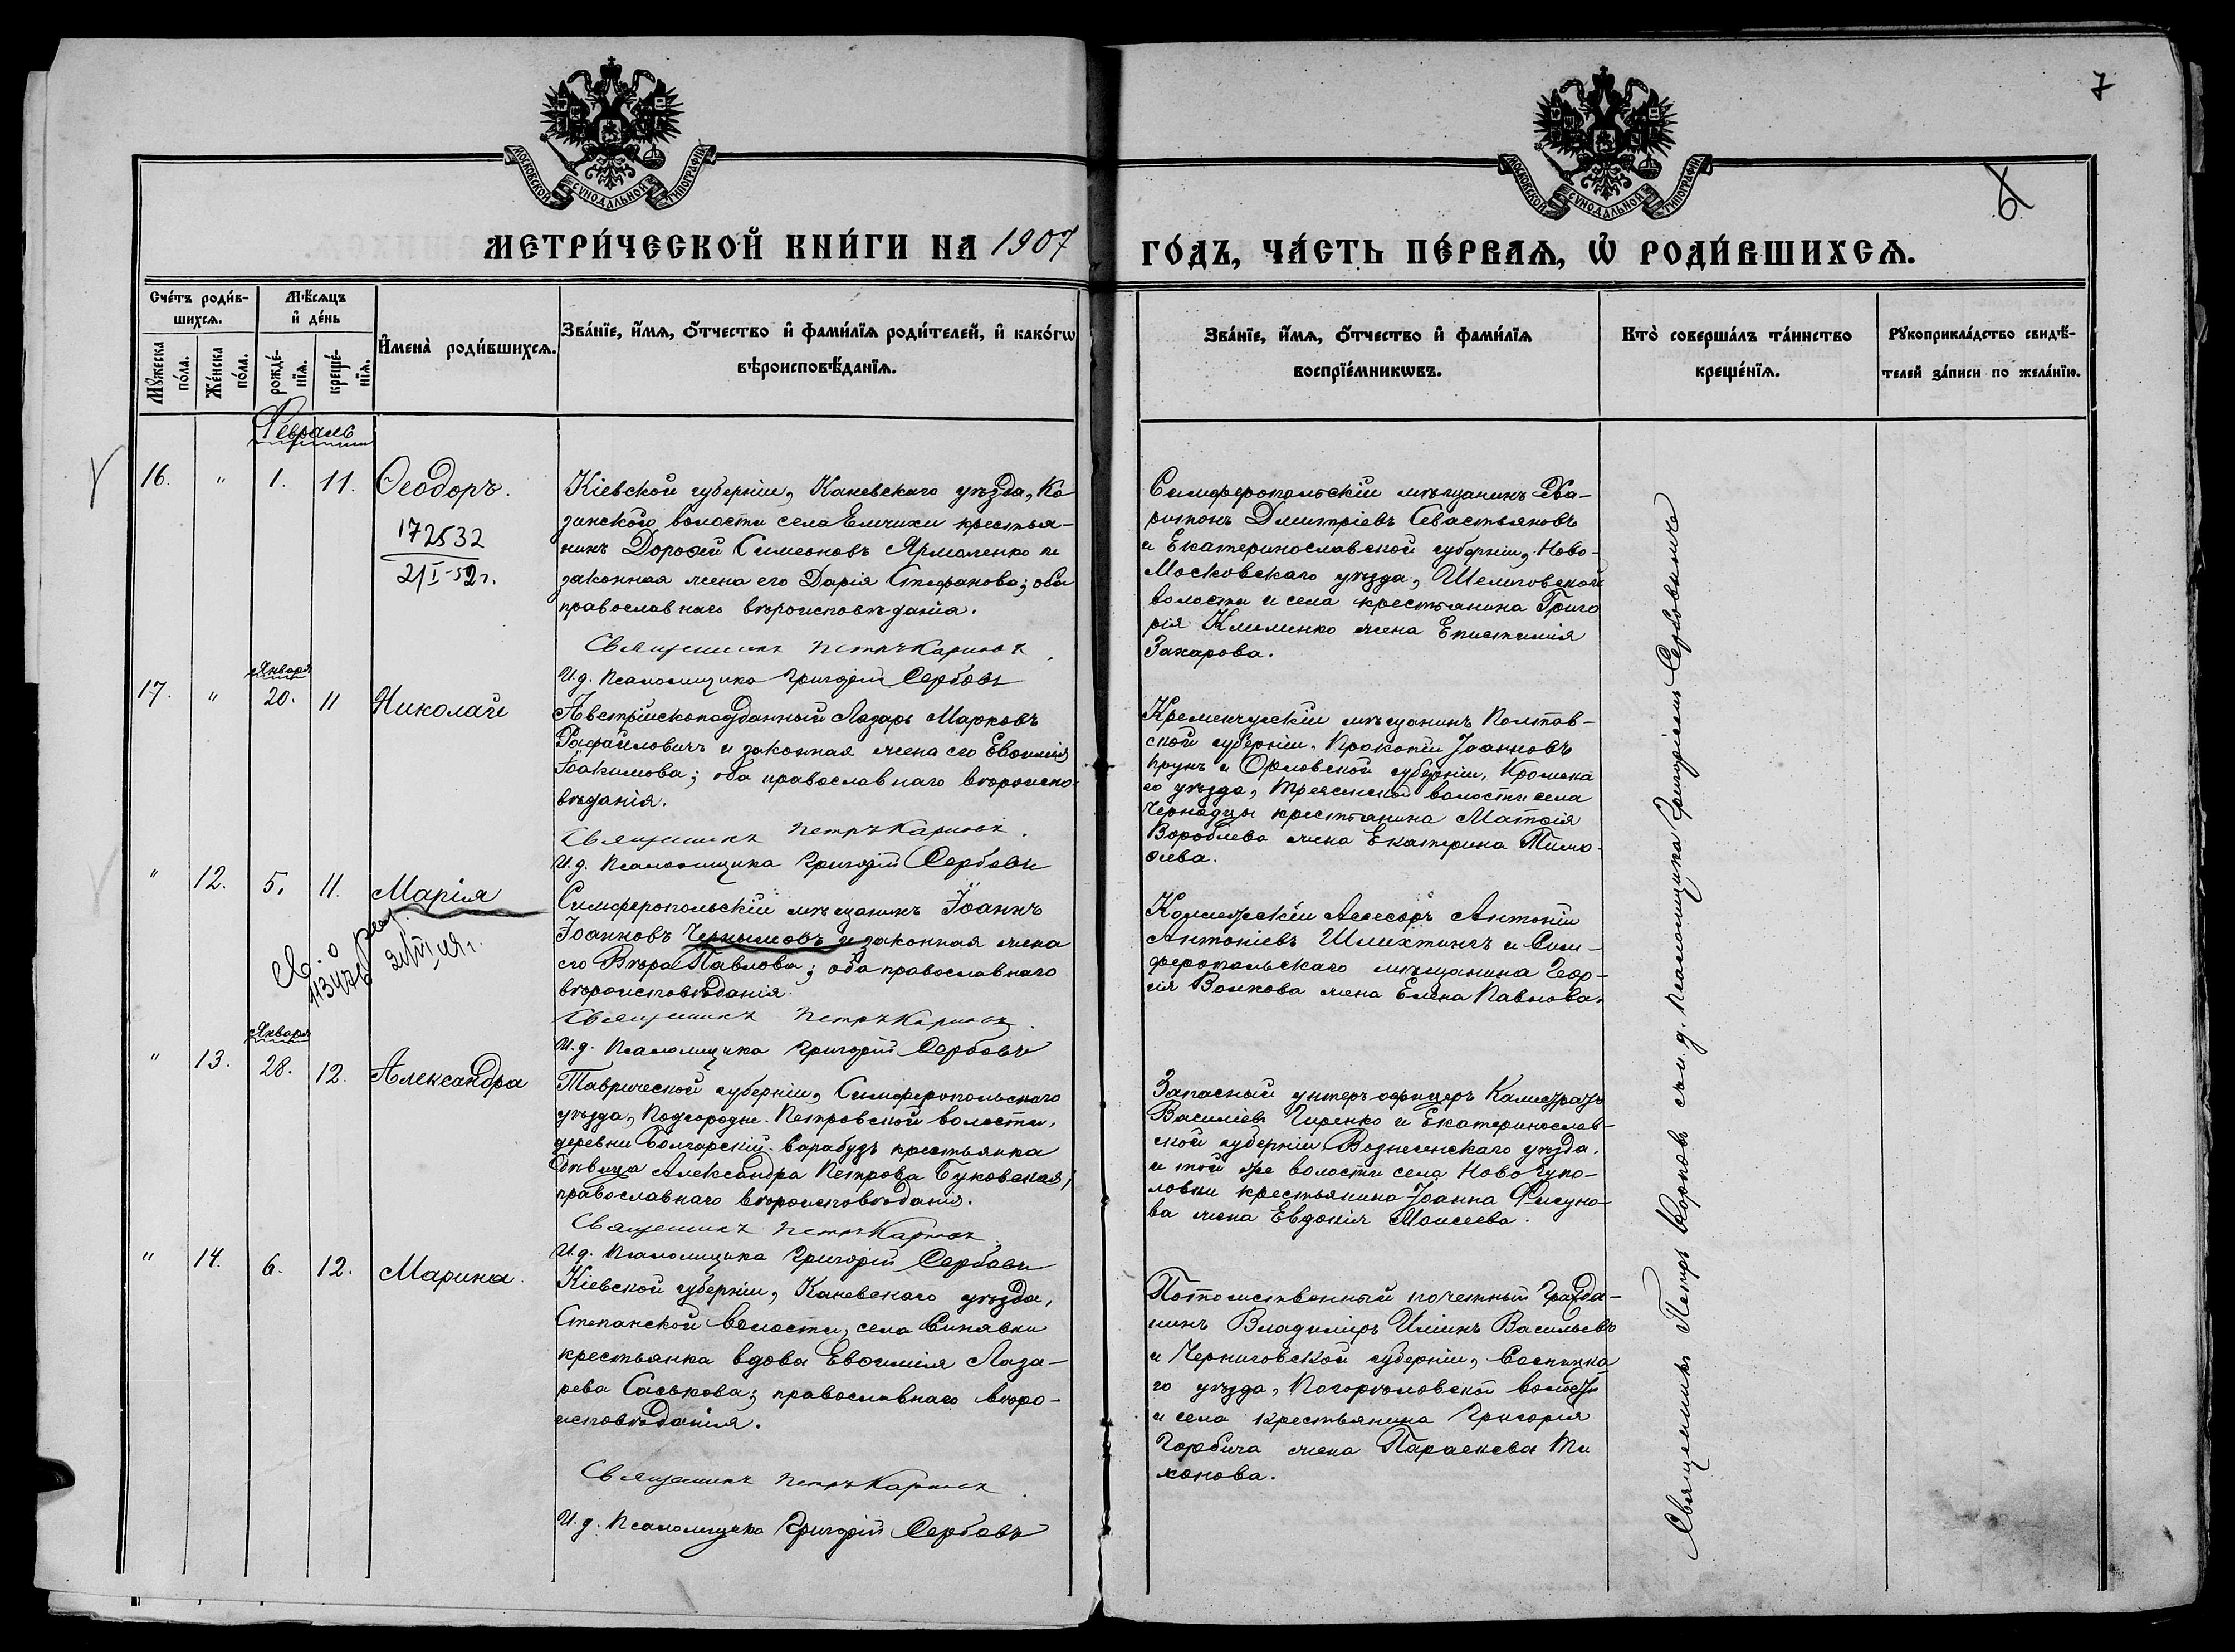 7
6
МОСКОВСКОЙ СУНОДАЛЬНОЙ ТИПОГРАФІИ
МОСКОВСКОЙ СУНОДАЛЬНОЙ ТИПОГРАФІИ
МЕТРИ́ЧЕСКОЙ КНИ́ГИ НА 1907
ГО́ДЪ, ЧА́СТЬ ПЕ́РВАѦ, Ѡ҆ РОДИ́ВШИХСѦ.
Сче́тъ роди́в-
шихсѧ.
Мꙋ́жеска
по́ла.
Же́нска
по́ла.
Мѣ́сѧцъ
и҆ де́нь
рожде́-
нїѧ.
креще́-
нїѧ.
И҆мена̀ роди́вшихсѧ.
Зва́нїе, и҆́мѧ, ѻ҆́тчество и҆ фами́лїѧ роди́телей, и҆ како́гѡ
вѣроисповѣ́данїѧ.
Зва́нїе, и҆́мѧ, ѻ҆́тчество и҆ фами́лїѧ
воспрїе́мникѡвъ.
Кто̀ соверша́лъ та́инство
креще́нїѧ.
Рꙋкоприкла́дство свидѣ́-
телей за́писи по жела́нїю.
Февраль
16. " 1. 11. Ѳеодоръ.
172532
21/I-52г.
Кіевской губерніи, Каневскаго уѣзда, Ко
занской волости села Емчихи крестья-
нинъ Дороѳей Симеоновъ Ярмаленко и
законная жена его Дарія Стефанова; оба
православнаго вѣроисповѣданія.
Священникъ Петръ Карпов
И.д. Псаломщика Григорій Сербовъ
Симферопольскій мѣщанинъ Ха-
ритонъ Димитріевъ Севастьяновъ
и Екатеринославской губерніи, Ново-
Московскаго уѣзда,
волости и села крестьянина Григо
рія Клименко жена Епистимія
Захарова.
Января
17. " 20. 11 Николай
Австрійскоподданный Лазарь Марковъ
Рафаиловичъ и законная жена его Евѳимія
Іоакимова; оба православнаго вѣроиспо-
вѣданія.
Священникъ Петръ Карпов.
И.д. Псаломщика Григорій Сербовъ
Кременчугскій мѣщанинъ Полтав-
ской губерніи, Прокопій Іоанновъ
Прунъ и Орловской губерніи, Кромска
го уѣзда, волости села
крестьянина Матѳія
Воробьева жена Екатерина Тимо-
ѳеева.
" 12. 5. 11. Марія
Св. о рож.
113476
31/III 49г.
Симферопольскій мѣщанинъ Іоаннъ
Іоанновъ Чернышовъ и законная жена
его Вѣра Павлова; оба православнаго
вѣроисповѣданія.
Священникъ Петръ Карпов.
И.д. Псаломщика Григорій Сербовъ
Коллежскій Ассесоръ Антоній
Антоніевъ Шлихтингъ и Сим-
феропольскаго мѣщанина Геор-
гія Волкова жена Елена Павлова.
Января
" 13. 28. 12. Александра
Таврической губерніи, Симферопольскаго
уѣзда, Подгородне-Петровской волости,
деревни Болгарскій-Сарабузъ крестьянка
дѣвица Александра Петрова Буковская;
православнаго вѣроисповѣданія.
Священникъ Петръ Карпов.
И.д. Псаломщика Григорій Сербовъ
Запасный унтеръ-офицеръ Калистратъ
Василіевъ Гиренко и Екатеринослав-
ской губерніи Вознесенскаго уѣзда,
и той же волости села Ново
ловки крестьянина Іоанна Фисуно-
ва жена Евдокія Моисеева.
" 14. 6. 12. Марина.
Кіевской губерніи, Каневскаго уѣзда,
Степанской волости, села Синявки
крестьянка вдова Евѳимія Лаза-
рева Саськова; православнаго вѣро-
исповѣданія.
Священникъ Петръ Карпов.
И.д. Псаломщика Григорій Сербовъ
Потомственный почетный гражда-
нинъ Владиміръ Васильевъ
и Черниговской губерніи, Сосницка
го уѣзда, Погорѣловской волости
и села крестьянина Григорія
Горбича жена Параскева Ти
хонова.
Священникъ Петръ Карповъ съ и. д. псаломщика Григоріемъ Сербовымъ